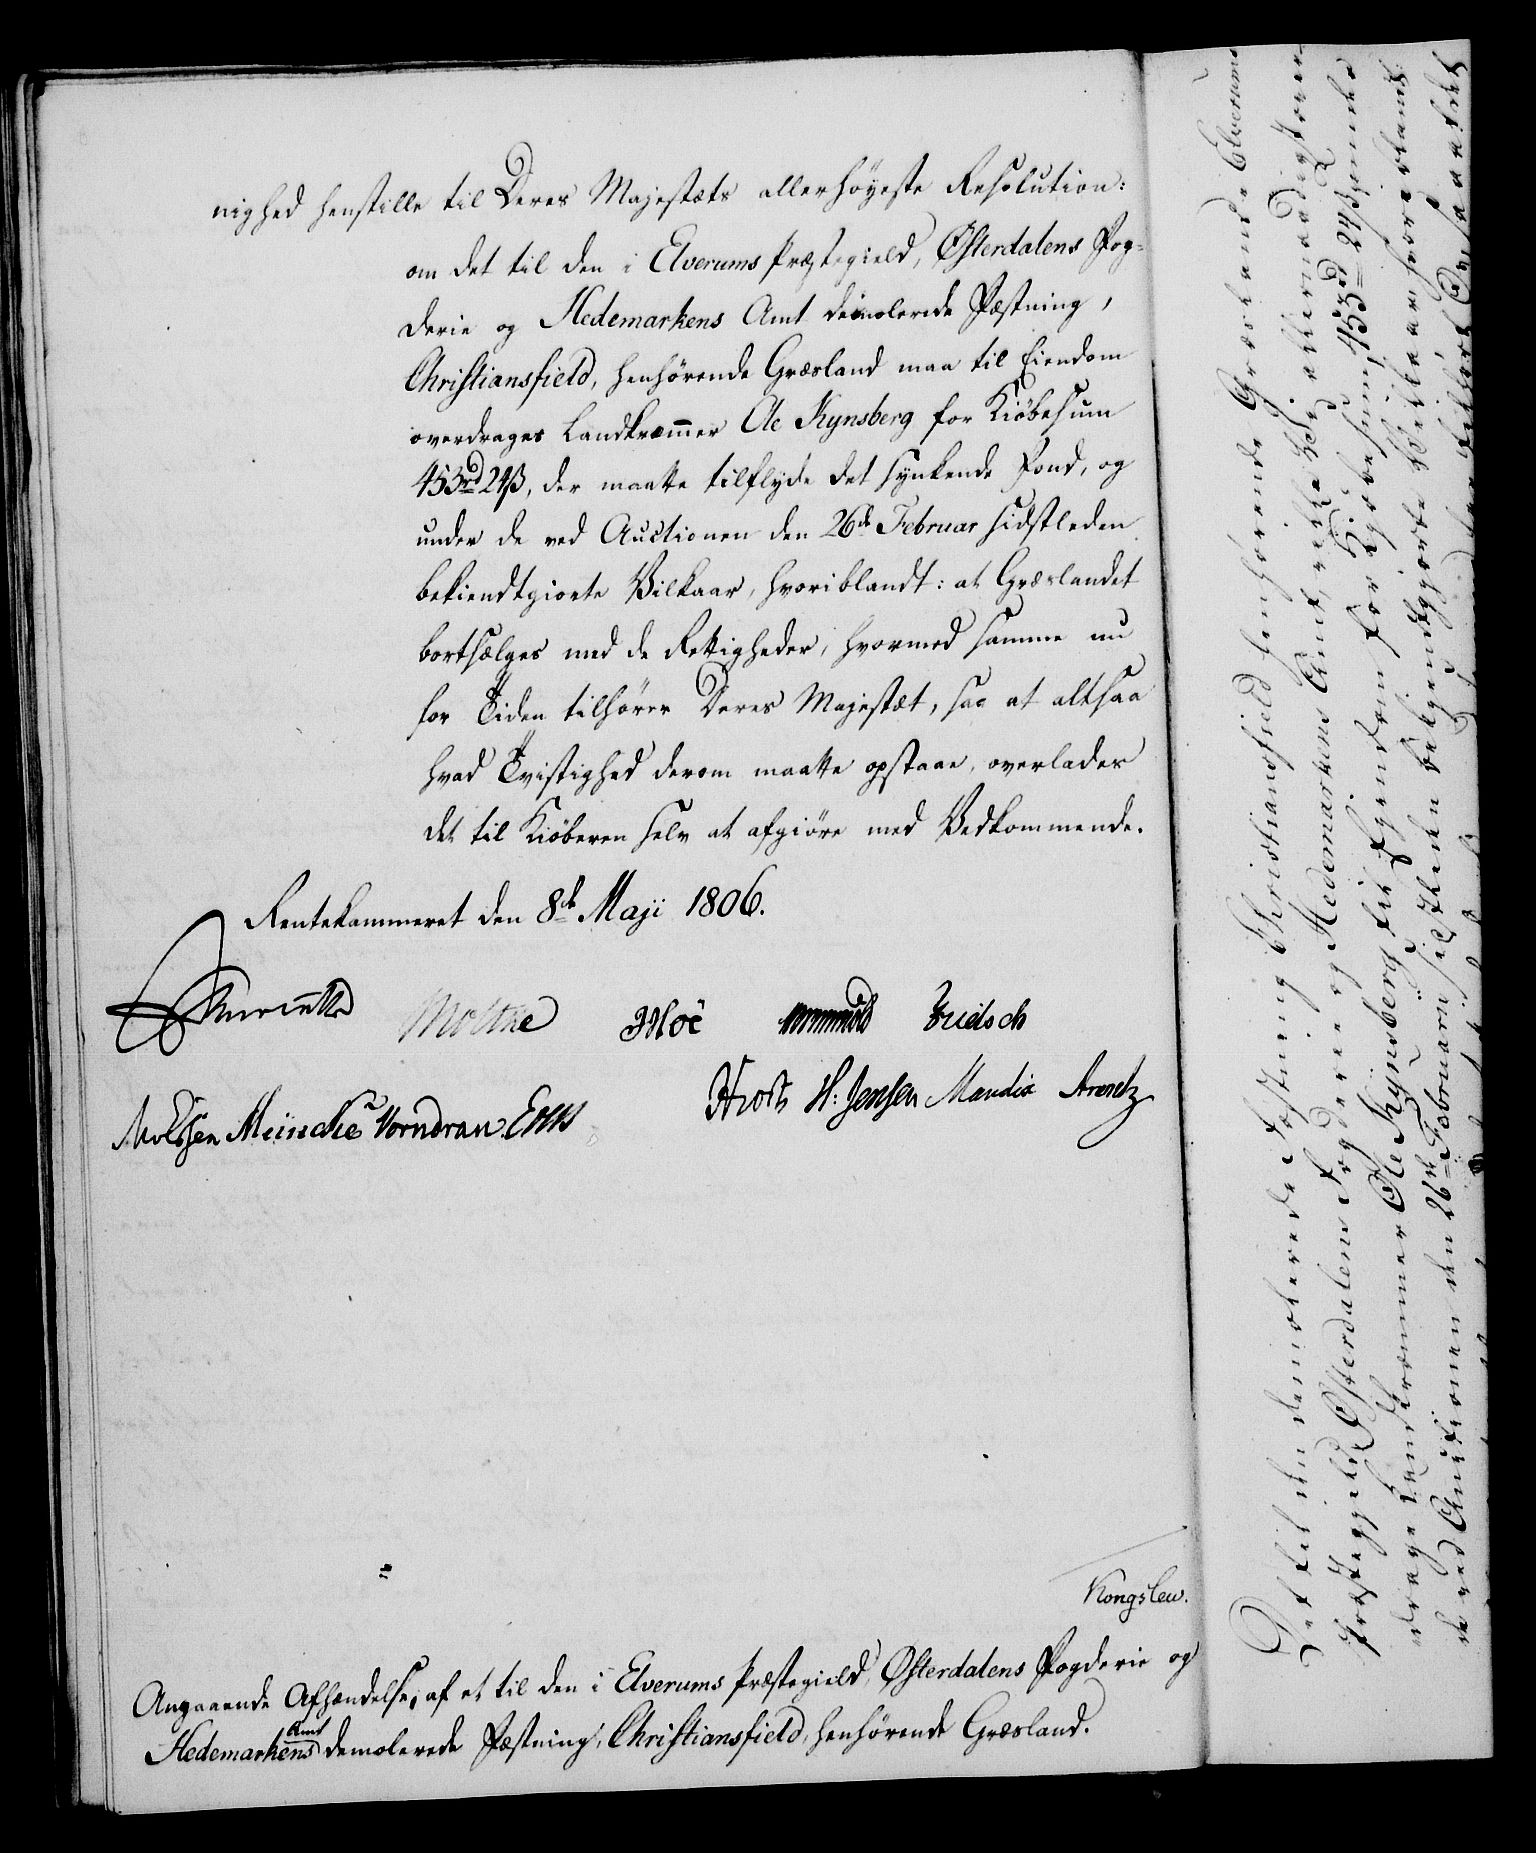 nighed henstille til Deres Majestæts allerhöyeste Resolution:
om det til den i Elverums Præstegield, Østerdalens Fog-
derie og Hedemarkens Amt demolerede Fæstning,
Christiansfield, henhörende Græsland maa til Eiendom
overdrages Landkræm̄er Ole Kynsberg for Kiöbesum
453rd 24ß, der maatte tilflyde det synkende Fond, og
under de ved Auctionen den 26de Februar sidstleden
bekiendtgiorte Vilkaar, hvoriblandt: at Græslandet
bortsælges med de Rettigheder, hvormed samme nu
for Tiden tilhörer Deres Majestæt, saa at altsaa
hvad Tvistighed derom maatte opstaae, overlades
det til Kiöberen selv at afgiöre med Vedkommende.
Rentekammeret den 8de Maji 1806.
Moltke Moë
H: Jensen Mandix Arentz
Meincke Vorndran
Kongslew.
Angaaende Afhændelse, af et til den i Elverums Præstegield, Østerdalens Fogderie og
Hedemarkens Amt demolerede Fæstning, Christiansfield, henhörende Græsland.
Det til den demolerede Fæstning Christiansfield henhörende Græsland i Elverums
Præstegjeld, Østerdalens Fogderie og Hedemarkens Amt,
drage Landkræmmer Ole Kynsberg til Ejendom for Kjöbesum, 453rd 24ß
de ved Auctionen den 26de Februarii sidstleden bekjendtgjorte Vilkaar, hvoriblandt: